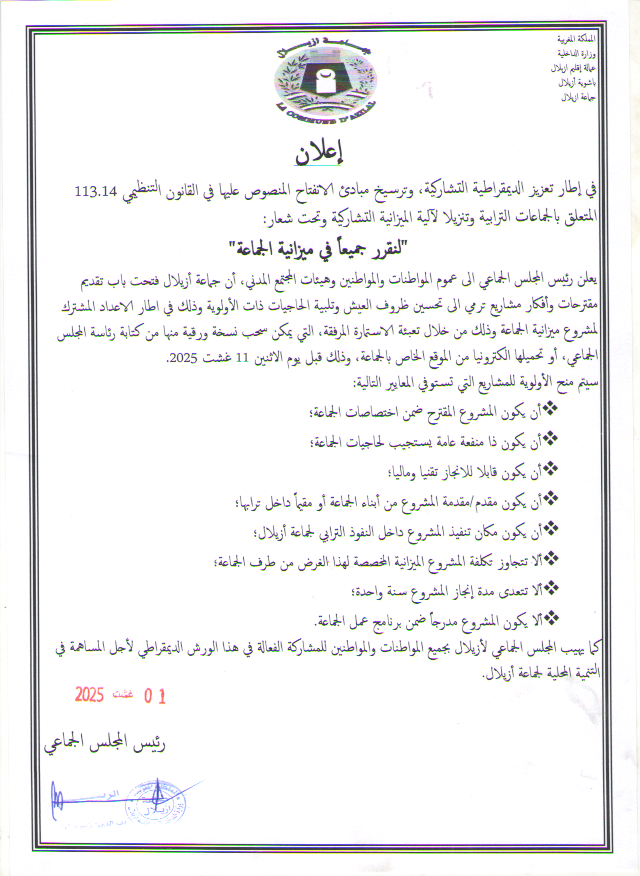 المملكة المغربية
وزارة الداخلية
عمالة إقليم ازيلال
باشوية أزيلال
جماعة ازيلال
جماعة ازيلال
LA COMMUNE D'AZILAL
إعلان
في إطار تعزيز الديمقراطية التشاركية، وترسيخ مبادئ الانفتاح المنصوص عليها في القانون التنظيمي 113.14
المتعلق بالجماعات الترابية وتنزيلا لآلية الميزانية التشاركية وتحت شعار:
"لنقرر جميعاً في ميزانية الجماعة"
يعلن رئيس المجلس الجماعي الى عموم المواطنات والمواطنين وهيئات المجتمع المدني، أن جماعة أزيلال فتحت باب تقديم
مقترحات وأفكار مشاريع ترمي الى تحسين ظروف العيش وتلبية الحاجيات ذات الأولوية وذلك في اطار الاعداد المشترك
لمشروع ميزانية الجماعة وذلك من خلال تعبئة الاستمارة المرفقة، التي يمكن سحب نسخة ورقية منها من كتابة رئاسة المجلس
الجماعي، أو تحميلها الكترونيا من الموقع الخاص بالجماعة، وذلك قبل يوم الاثنين 11 غشت 2025.
سيتم منح الأولوية للمشاريع التي تستوفي المعايير التالية:
❖أن يكون المشروع المقترح ضمن اختصاصات الجماعة؛
❖أن يكون ذا منفعة عامة يستجيب لحاجيات الجماعة؛
❖أن يكون قابلا للانجاز تقنيا وماليا؛
❖أن يكون مقدم/مقدمة المشروع من أبناء الجماعة أو مقيماً داخل ترابها؛
❖أن يكون مكان تنفيذ المشروع داخل النفوذ الترابي لجماعة أزيلال؛
❖ألا تتجاوز تكلفة المشروع الميزانية المخصصة لهذا الغرض من طرف الجماعة؛
❖ألا تتعدى مدة إنجاز المشروع سنة واحدة؛
❖ألا يكون المشروع مدرجاً ضمن برنامج عمل الجماعة.
كما يهيب المجلس الجماعي لأزيلال بجميع المواطنات والمواطنين للمشاركة الفعالة في هذا الورش الديمقراطي لأجل المساهمة في
التنمية المحلية لجماعة أزيلال.
01 غشت 2025
رئيس المجلس الجماعي